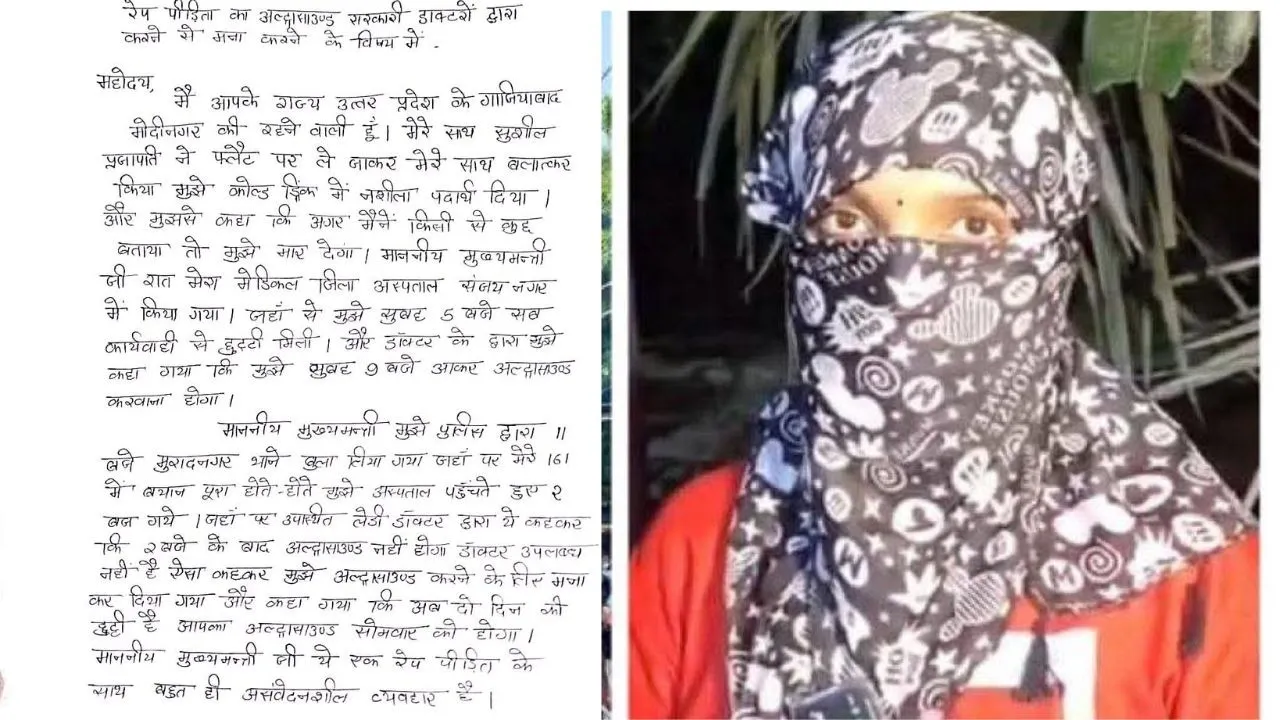 रेप पीड़िता का अल्ट्रासाउण्ड सरकारी डाक्टरों द्वारा
करने से मना करने के विषय में .
महोदय,
मै आपके राज्य उत्तर प्रदेश के गाजियाबाद
मोदीनगर की रहने वाली हूँ। मेरे साथ सुशील
प्रजापति ने फ्लैट पर ले जाकर मेरे साथ बलात्कर
किया मुझे कोल्ड ड्रिंक में नशीला पदार्थ दिया।
और मुझसे कहा कि अगर मैनें किसी से कुछ
बताया तो मुझे मार देगा। माननीय मुख्यमन्त्री
जी रात मेरा मेडिकल जिला अस्पताल संजय नगर
में किया गया। जहाँ से मुझे सुबह 5 बजे सब
कार्यवाही से छुट्टी मिली। और डॉक्टर के द्वारा मुझे
कहा गया कि मुझे सुबह 9 बजे आकर अल्ट्रासाउण्ड
करवाना होगा।
माननीय मुख्यमन्त्री मुझे पुलिस द्वारा 11
बजे मुरादनगर थाने बुला लिया गया जहाँ पर मेरे 161
में बयान पूरा होते-होते मुझे अस्पताल पहुँचते हुए 2
बज गये। जहाँ पर उपस्थित लेडी डॉक्टर द्वारा ये कहकर
कि 2 बजे के बाद अल्ट्रासाउण्ड नहीं होगा डॉक्टर उपलब्ध
नहीं है ऐसा कहकर मुझे अल्ट्रासाउण्ड करने के लिए मना
कर दिया गया और कहा गया कि अब दो दिन की
छुट्टी है आपका अल्ट्रासाउण्ड सोमवार को होगा।
माननीय मुख्यमन्त्री जी ये एक रेप पीड़ित के
साथ बहुत ही असंवेदनशील व्यवहार है।